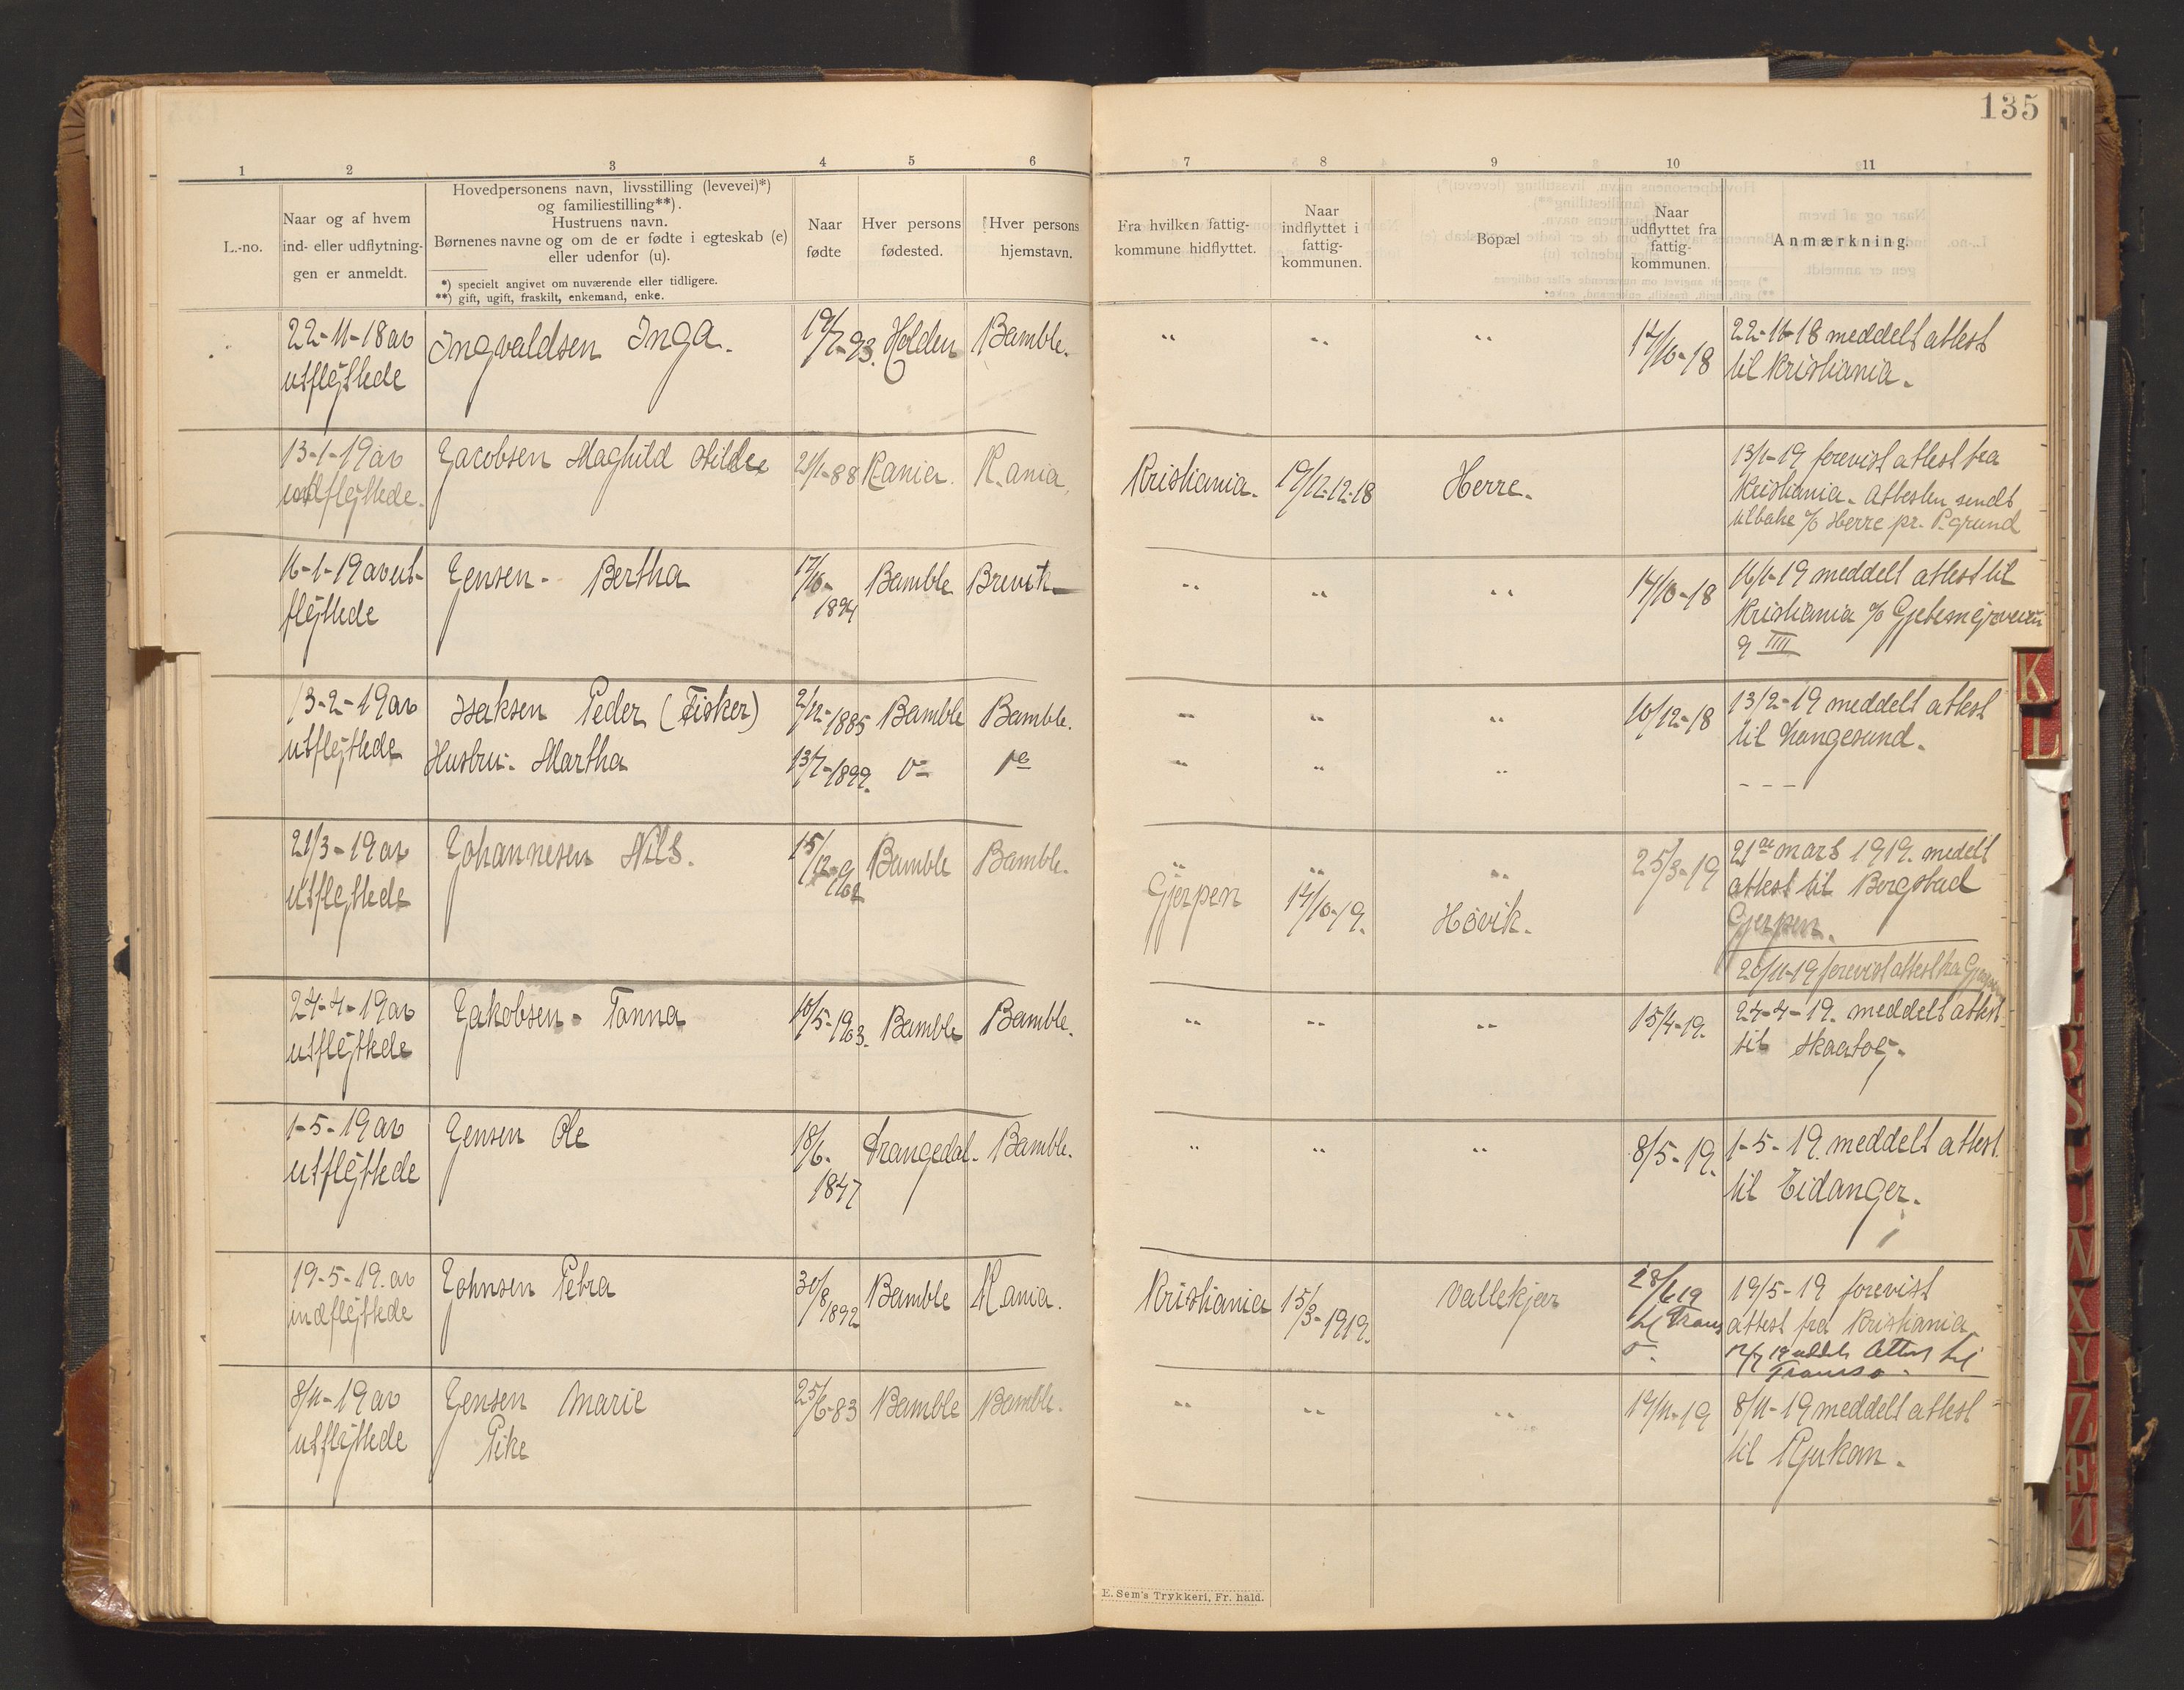 135
1 2 3 4 5 6 7 8 9 10 11
L.-no.
Naar og af hvem
ind- eller udflytnin-
gen er anmeldt.
Hovedpersonens navn, livsstilling (levevei)*)
og familiestilling**).
Hustruens navn.
Børnenes navne og om de er fødte i egteskab (e)
eller udenfor (u).
*) specielt angivet om nuværende eller tidligere.
**) gift, ugift, fraskilt, enkemand, enke.
Naar
fødte
Hver persons
fødested.
Hver persons
hjemstavn.
Fra hvilken fattig-
kommune hidflyttet.
Naar
indflyttet i
fattig-
kommunen.
Bopæl
Naar
udflyttet fra
fattig-
kommunen.
Anmærkning.
22-11-18 av
utflyttede
Ingvaldsen Inga.
19/7-93. Holden
Bamble.
" " "
14/10-18
22-11-18 meddelt attest
til Kristiania.
13-1-19 av
indflyttede.
Jacobsen Maghild Hilde
21/1-88 K.ania. K.ania.
Kristiania. 19/12-12-18 Herre.
13/1-19 forevist attest fra
Kristiania. Attesten sendt
tilbake % Herre pr. P.grund
16-1-19 av ut-
flyttede
Jensen - Bertha
17/10-
1894
Bamble Brevik
" " "
14/10-18
16/1-19 meddelt attest til
Kristiania %
9 IIII
13-2-19 av
utflyttede
Isaksen Peder (Fisker)
2/12-1885 Bamble Bamble.
" " "
10/12-18
13/2-19 meddelt attest
til Langesund.
Hustru: Martha
13/7-1892.
" " "
- - -
21/3-19 av
utflyttede
Johannesen Nils.
15/12-1902
Bamble Bamble.
" " "
Gjerpen 14/10-19. Høvik.
25/3-19
21de mars 1919. medelt
attest til Borgstad
Gjerpen.
20/11-19 forevist attest fra Gjerpen
24-4-19 av
utflyttede
Jakobsen - Tonna
10/5-1903. Bamble Bamble.
" " "
15/4-19.
24-4-19. meddelt attest
til Skaatøy.
1-5-19 av
utflyttede
Jensen Ole
18/6-
1847
Drangedal. Bamble.
" " "
8/5-19.
1-5-19. meddelt attest
til Eidanger.
19-5-19. av
indflyttede
Johnsen Petra
30/8 1892 Bamble K.ania.
Kristiania 15/3-1919. Vallekjær
28/6 19
til Troms
ø.
19/5-19 forevist
attest fra Kristiania
19 Attest til
Tromsø.
8/11-19 av
utflyttede
Jensen Marie
Pike
25/6-83 Bamble Bamble.
" " "
19/11-19
8/11-19 meddelt attest
til Rjukan.
E. Sem's Trykkeri, Fr. hald.
K
L
X
Y
Z
Æ